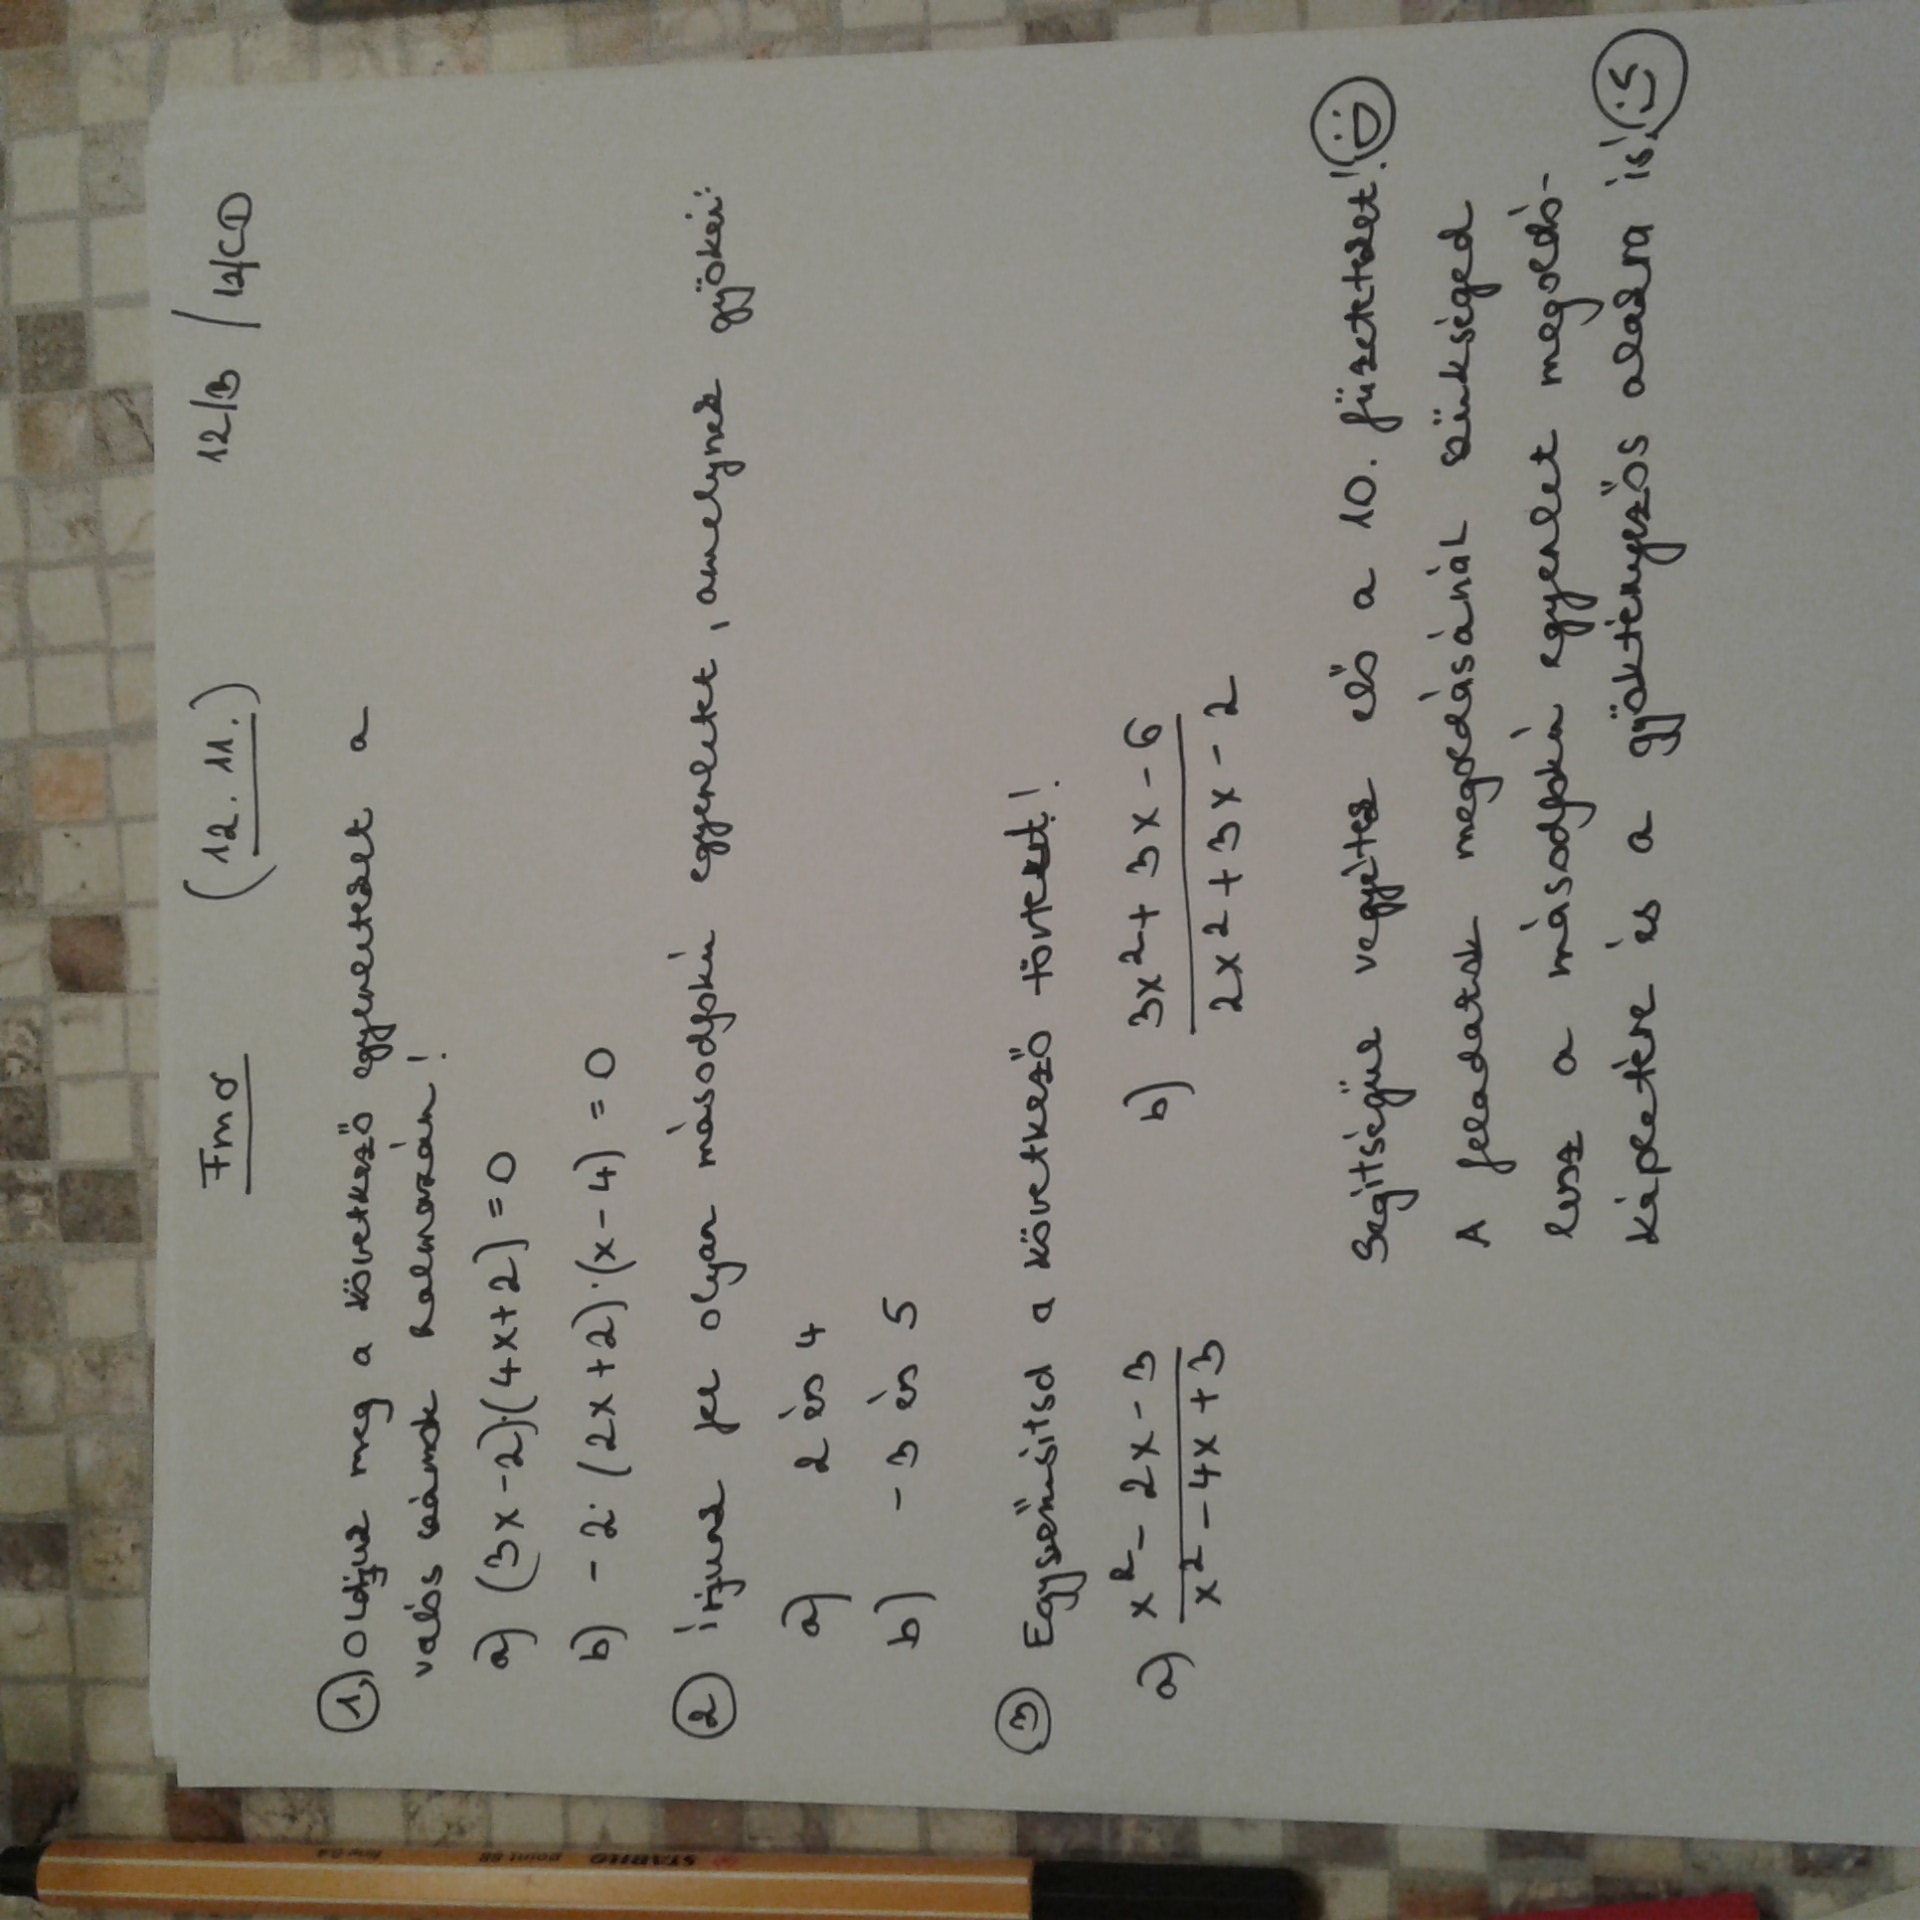 Fmo (12. 11.) 12/B / 12/CD
① Oldjuk meg a következő egyenleteket a
valós számok halmazán!
a) (3x-2)·(4x+2)=0
b) -2·(2x+2)·(x-4)=0
② Írjunk fel olyan másodfokú egyenletet, amelynek gyökei:
a) 2 és 4
b) -3 és 5
③ Egyszerűsítsd a következő törteket!
a) x²-2x-3 / x²-4x+3 b) 3x²+3x-6 / 2x²+3x-2
Segítségül vegyétek elő a 10. füzeteteket!
A feladatok megoldásánál szükséged
lesz a másodfokú egyenlet megoldó-
képletére és a gyöktényezős alakra is!
STABILO point 88 fine 0.4